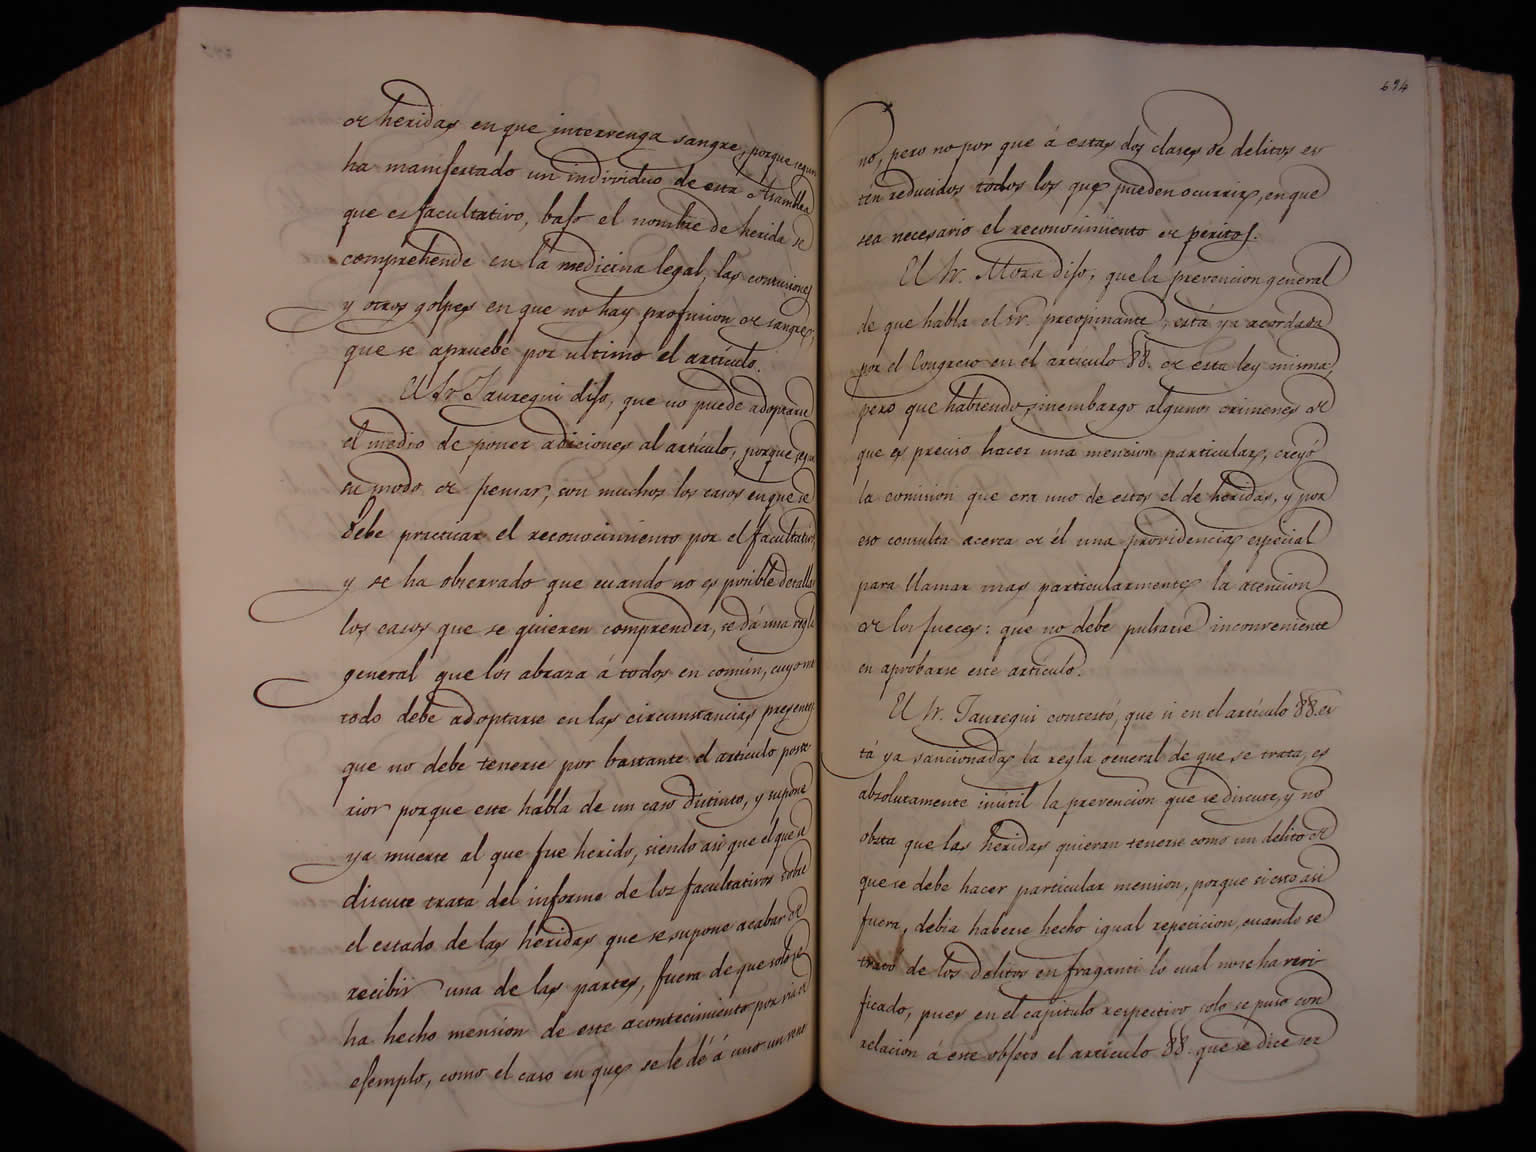 de heridas en que intervenga sangre, porque segun
ha manifestado un individuo de esta Asamblea
que es facultativo, bajo el nombre de herida se
comprehende en la medicina legal, las contusiones
y otros golpes en que no hay profusion de sangre,
que se apruebe por ultimo el artículo.
El Sr. Jauregui dijo, que no puede adoptarse
el medio de poner adiciones al artículo, porque segun
su modo de pensar, son muchos los casos en que se
debe practicar el reconocimiento por el facultativo,
y se ha observado que cuando no es posible detallar
los casos que se quieren comprender, se dá una regla
general que los abraza á todos en común, cuyo me
todo debe adoptarse en las circunstancias presentes:
que no debe tenerse por bastante el artículo poste
rior porque este habla de un caso distinto, y supone
ya muerte al que fue herido, siendo asi que el que se
discute trata del informe de los facultativos sobre
el estado de las heridas que se supone acabar de
recibir una de las partes, fuera de que solo se
ha hecho mension de este acontecimiento por via de
ejemplo, como el caso en que se le dé á uno un vene
694
no, pero no por que á estas dos clases de delitos es
ten reducidos todos los que pueden ocurrir, en que
sea necesario el reconocimiento de peritos.
El Sr. Mora dijo, que la prevencion general
de que habla el Sr. preopinante, está ya acordada
por el Congreso en el artículo 88. de esta ley misma,
pero que habiendo sinembargo algunos crimenes de
que es preciso hacer una mension particular, creyó
la comision que era uno de estos el de heridas, y por
eso consulta acerca de él una providencia especial
para llamar mas particularmente la atencion
de los jueces: que no debe pulsarse inconveniente
en aprobarse este artículo.
El Sr. Jauregui contestó, que si en el artículo 88. es
tá ya sancionada la regla general de que se trata, es
absolutamente inútil la prevencion que se discute, y no
obsta que las heridas quieran tenerse como un delito de
que se debe hacer particular mension, porque si esto asi
fuera, debia haberse hecho igual repeticion, cuando se
trató de los delitos en fraganti lo cual no se ha veri
ficado, pues en el capitulo respectivo solo se puso con
relacion á este objeto el artículo 88. que se dice ser